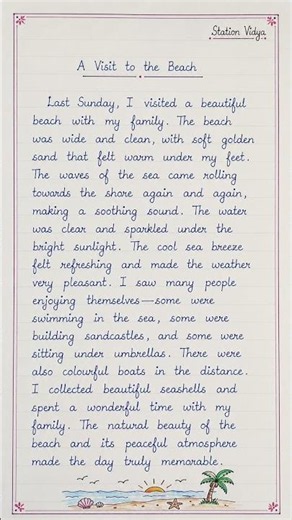 Station Vidya
A Visit to the Beach
Last Sunday, I visited a beautiful
beach with my family. The beach
was wide and clean, with soft golden
sand that felt warm under my feet.
The waves of the sea came rolling
towards the shore again and again,
making a soothing sound. The water
was clear and sparkled under the
bright sunlight. The cool sea breeze
felt refreshing and made the weather
very pleasant. I saw many people
enjoying themselves—some were
swimming in the sea, some were
building sandcastles, and some were
sitting under umbrellas. There were
also colourful boats in the distance.
I collected beautiful seashells and
spent a wonderful time with my
family. The natural beauty of the
beach and its peaceful atmosphere
made the day truly memorable.